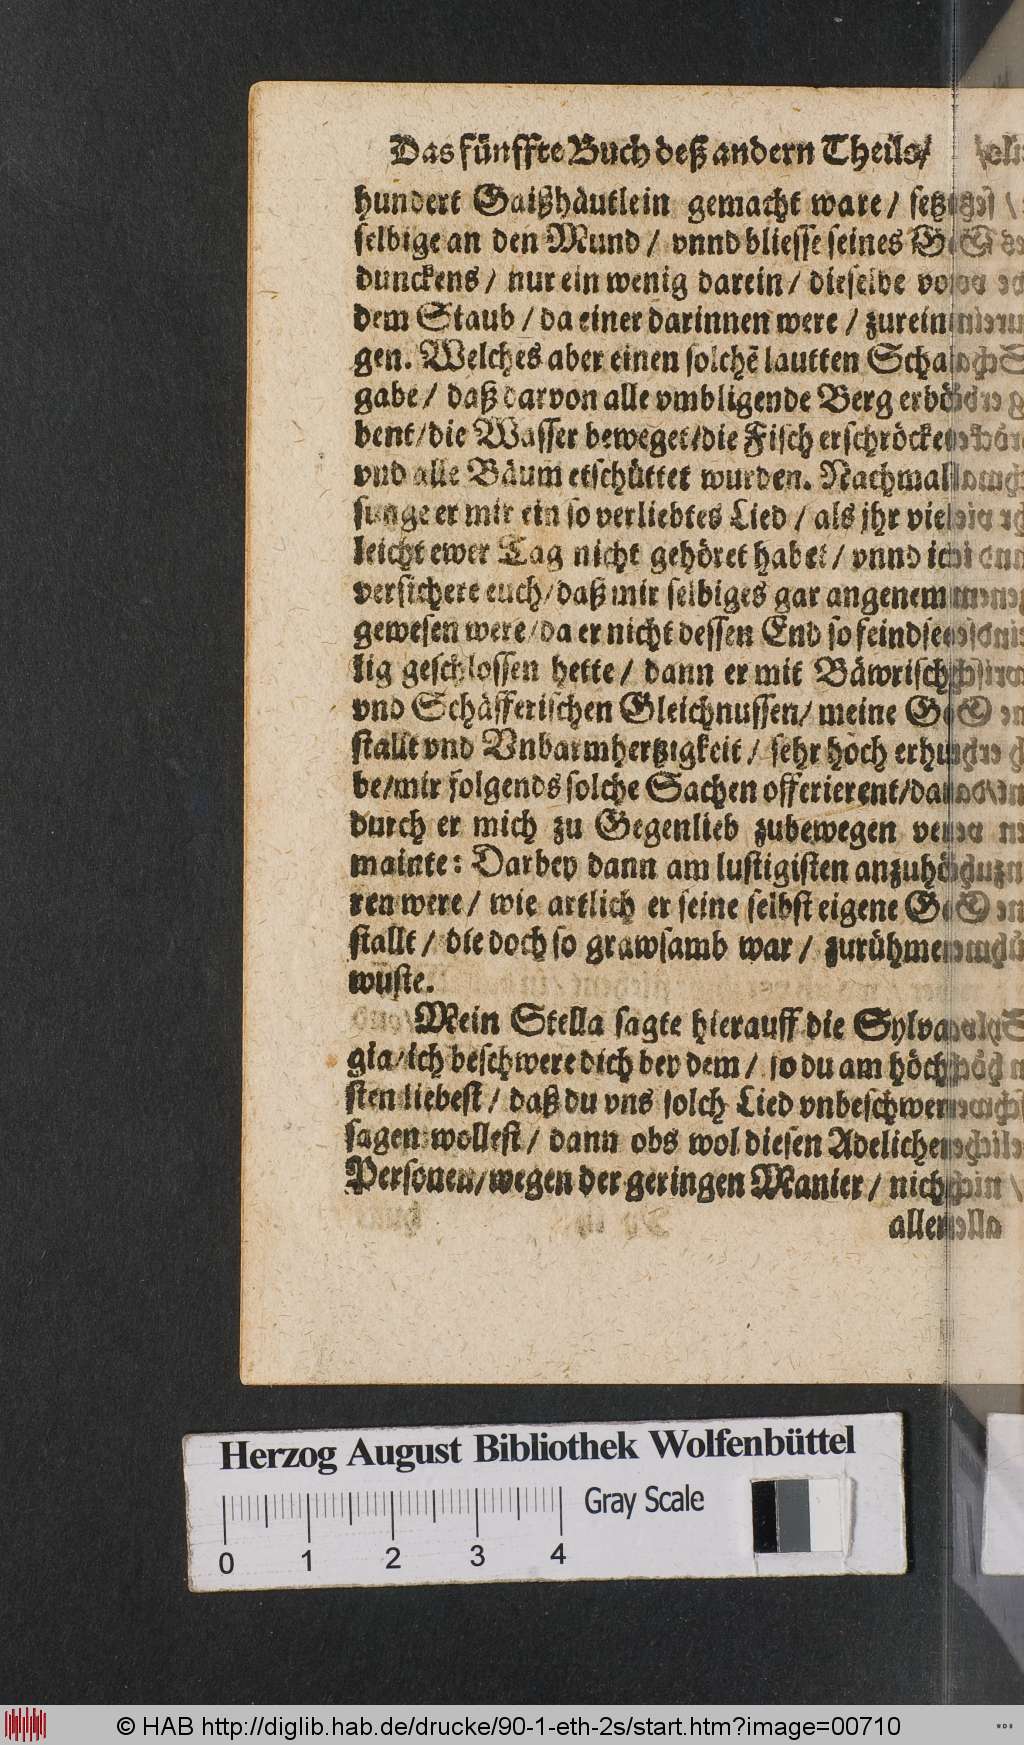 Das fünffte Buch deß andern Theils/
hundert Gaißhäutlein gemacht ware / setzt
selbige an den Mund / vnnd bliesse seines
dunckens / nur ein wenig darein / dieselbe vo
dem Staub / da einer darinnen were / zureini
gen. Welches aber einen solchẽ lautten Schal
gabe / daß darvon alle vmbligende Berg erbö
bent/die Wasser beweget/die Fisch erschröcket
vnd alle Bäum etschüttet wurden. Nachmal
sunge er mir ein so verliebtes Lied / als jhr viel
leicht ewer Tag nicht gehöret habet / vnnd ich
versichere euch/daß mir selbiges gar angenem
gewesen were/da er nicht dessen End so feindsee
lig geschlossen hette / dann er mit Bäwrisch
vnd Schäfferischen Gleichnussen/ meine Ge
stallt vnd Vnbarmhertzigkeit / sehr hoch erhu
be/mir folgends solche Sachen offerierent/da
durch er mich zu Gegenlieb zubewegen ver
mainte: Darbey dann am lustigisten anzuhö
ren were / wie artlich er seine selbst eigene Ge
stallt / die doch so grawsamb war / zurühmen
wuste.
Mein Stella sagte hierauff die Sylva
gia/ich beschwere dich bey dem / so du am höch
sten liebest / daß du vns solch Lied vnbeschwert
sagen wollest / dann obs wol diesen Adelichen
Personen/wegen der geringen Manier / nicht
allen
Herzog August Bibliothek Wolfenbüttel
Gray Scale
0 1 2 3 4
© HAB http://diglib.hab.de/drucke/90-1-eth-2s/start.htm?image=00710